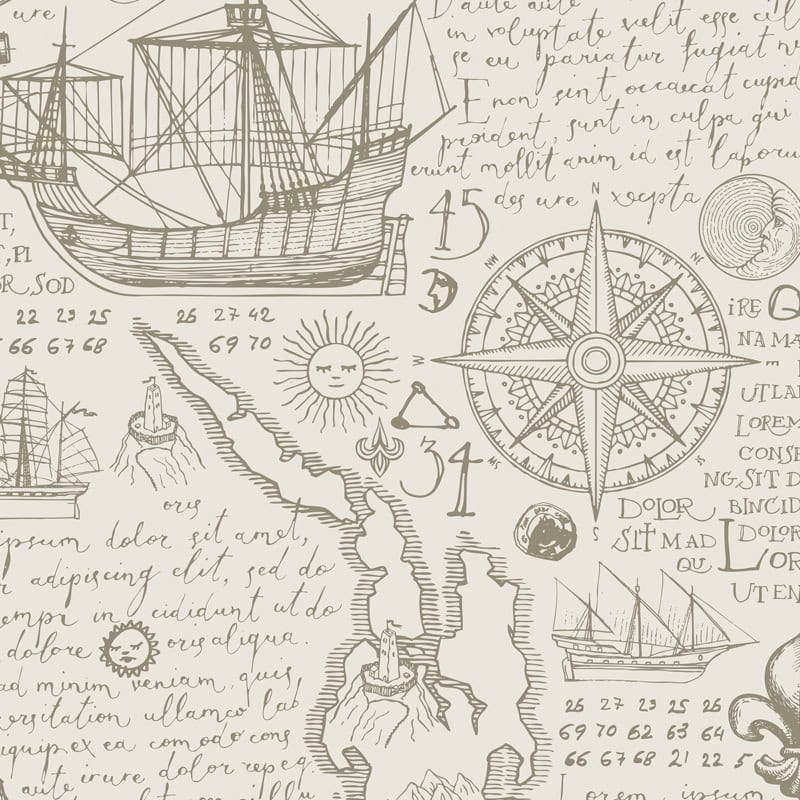 ure
D aute aute
in voluptate velit esse cill
se eu pariatur fugiat n
E non sint occaecat cupid
proident, sunt in culpa qui
erunt mollit anim id est laboru
des ure xcepta
45
T,
,PI
OR SOD
22 23 25 26 27 42
66 67 68 69 70
N
NW
NE
W
E
S
34
iRE Q
NAMA
UTLAB
LOREM
CONSE
NG SIT D
DOLOR BINCID
SIT MAD DOLOR
QU LOR
UT EN
oris
ipsum dolor sit amet,
r adipiscing elit, sed do
tempr in cididunt ut do
dolore oris aliqua.
ad minim veniam, quis
ersitation ullamco lab
iquip ex ea comodo cons
aute irure dolor repeq.
26 27 23 25 26
69 70 62 63 64
66 67 68 21 22 5
Lorem ipsum